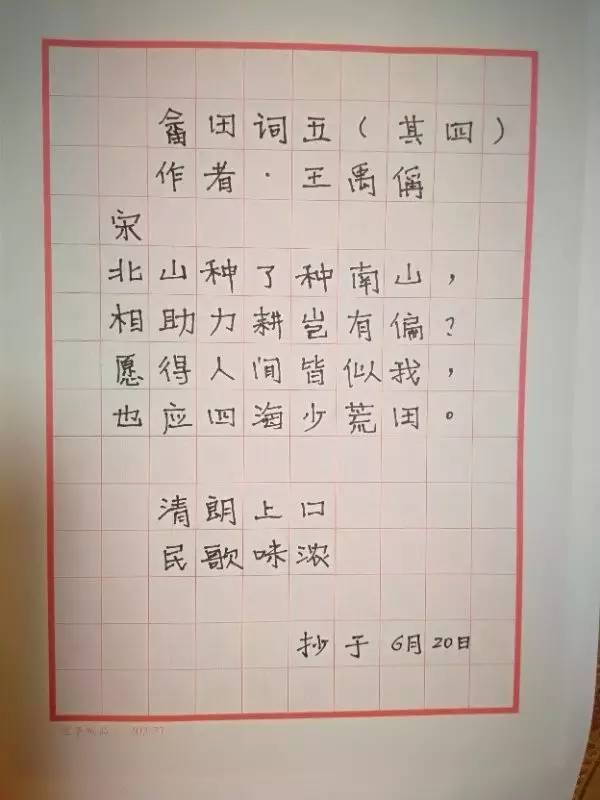 畬田词五（其四）
作者·王禹偁
宋
北山种了种南山，
相助力耕岂有偏？
愿得人间皆似我，
也应四海少荒田。
清朗上口
民歌味浓
抄于6月20日